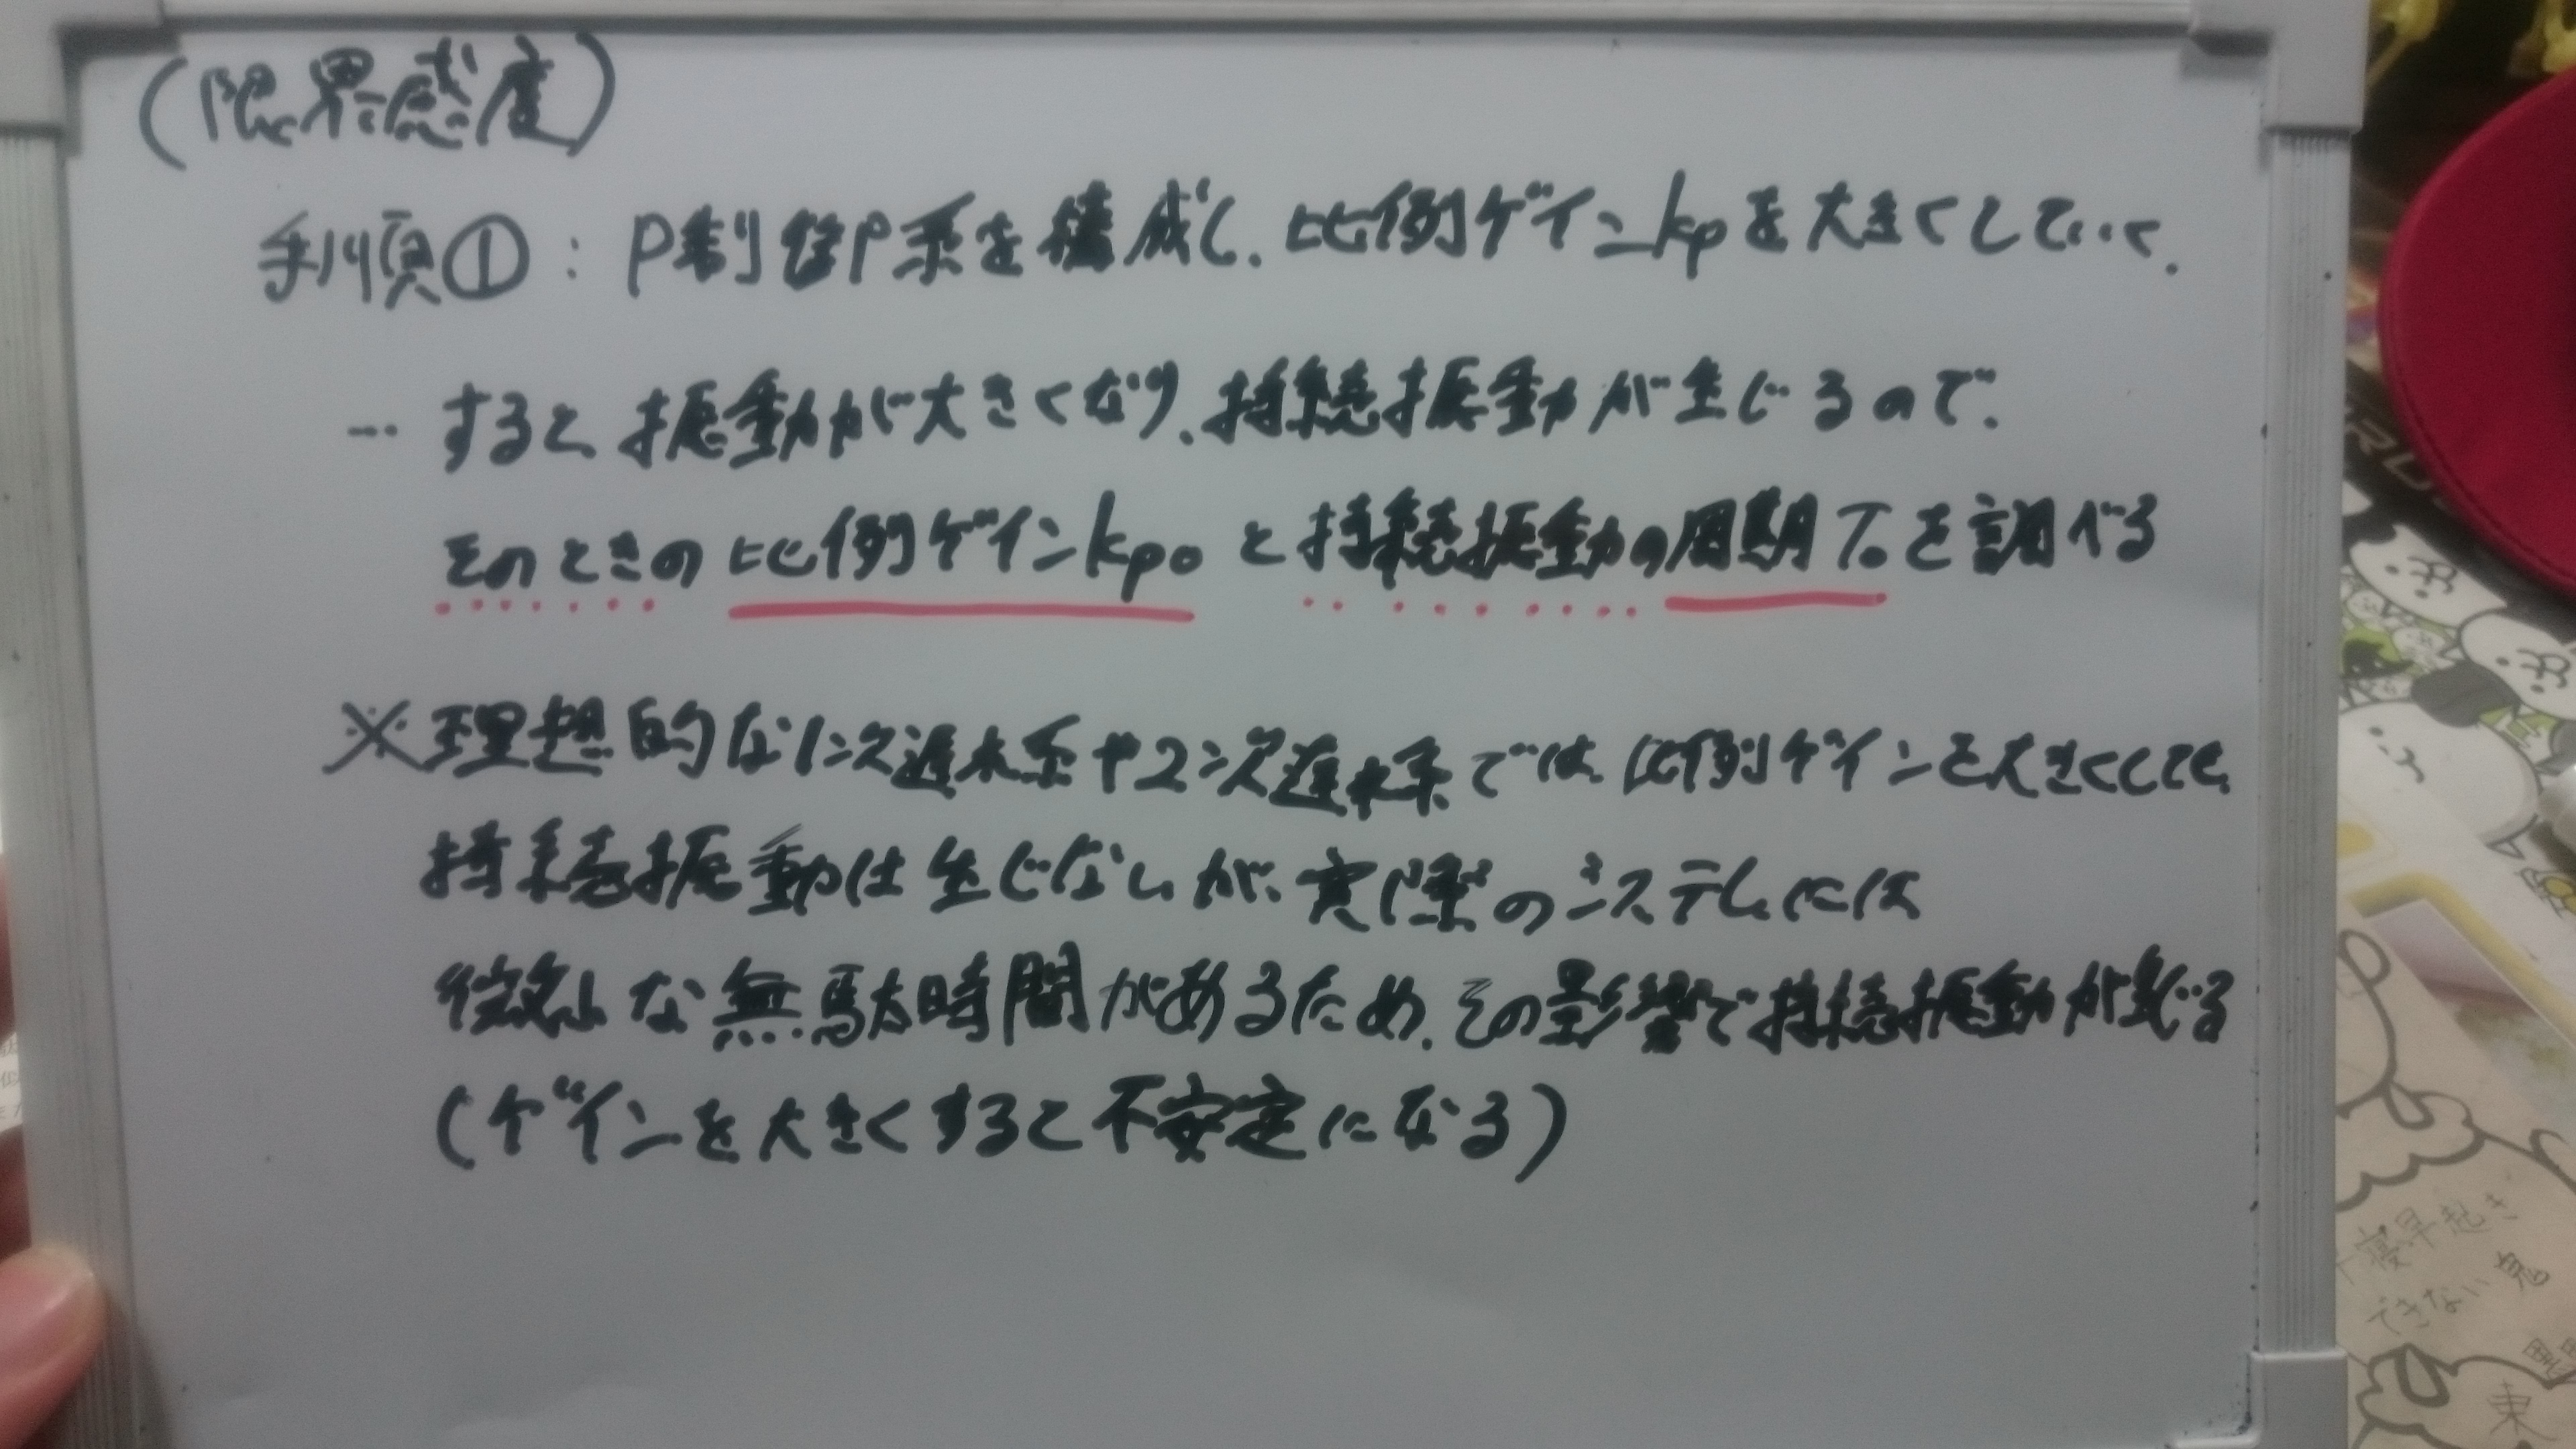 (限界感度)
手順①：P制御系を構成し、比例ゲインkpを大きくしていく.
… すると振動が大きくなり、持続振動が生じるので、
そのときの比例ゲインkp0と持続振動の周期T0を調べる
※理想的な1次遅れ系や2次遅れ系では、比例ゲインを大きくしても、
持続振動は生じないが、実際のシステムには
微小な無駄時間があるため、その影響で持続振動が生じる
(ゲインを大きくすると不安定になる)
早起き
できない
東